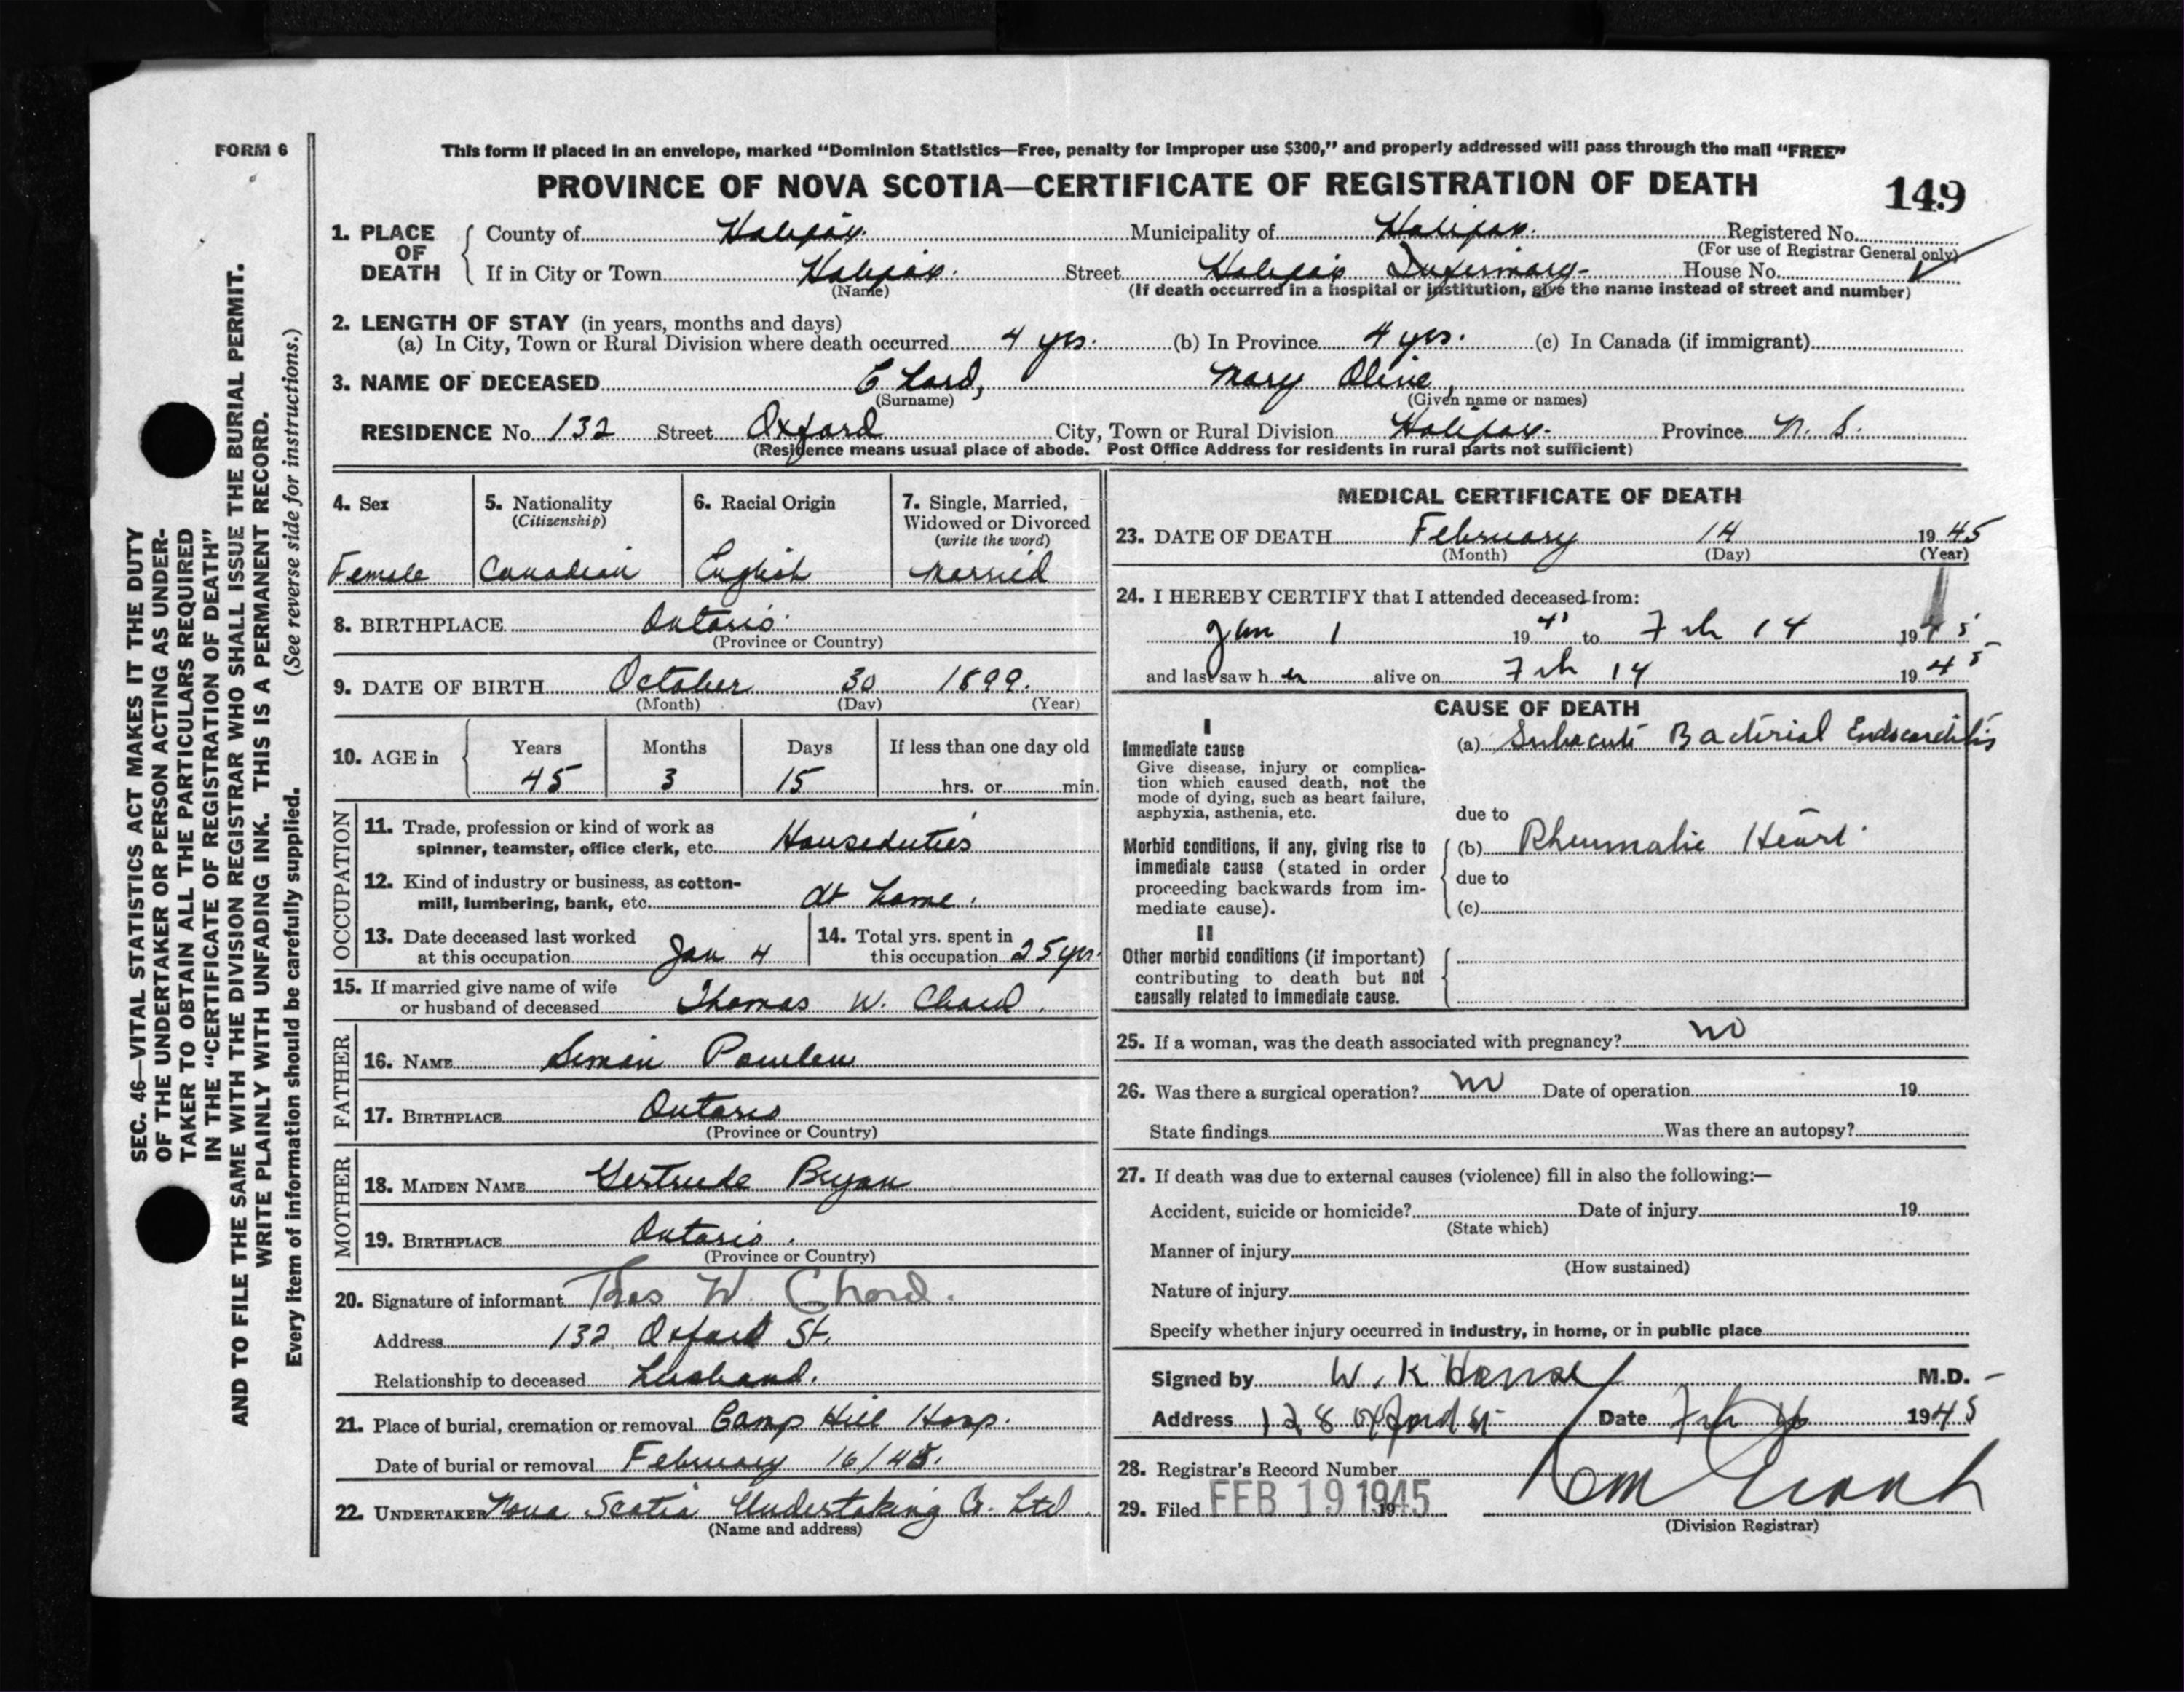 FORM 6
This form if placed in an envelope, marked “Dominion Statistics—Free, penalty for improper use $300,” and properly addressed will pass through the mail “FREE”
PROVINCE OF NOVA SCOTIA—CERTIFICATE OF REGISTRATION OF DEATH
149
1. PLACE OF DEATH
County of Halifax. Municipality of Halifax. Registered No.
(For use of Registrar General only)
If in City or Town Halifax. Street Halifax Infirmary- House No.
(Name) (If death occurred in a hospital or institution, give the name instead of street and number)
2. LENGTH OF STAY (in years, months and days)
(a) In City, Town or Rural Division where death occurred 4 yrs. (b) In Province 4 yrs. (c) In Canada (if immigrant)
3. NAME OF DECEASED Chard, Mary Olive,
(Surname) (Given name or names)
RESIDENCE No. 132 Street Oxford City, Town or Rural Division Halifax. Province N. S.
(Residence means usual place of abode. Post Office Address for residents in rural parts not sufficient)
4. Sex
Female
5. Nationality
(Citizenship)
Canadian
6. Racial Origin
English
7. Single, Married,
Widowed or Divorced
(write the word)
Married
8. BIRTHPLACE Ontario.
(Province or Country)
9. DATE OF BIRTH October 30 1899.
(Month) (Day) (Year)
10. AGE in
Years Months Days If less than one day old
45 3 15 hrs. or min.
OCCUPATION
11. Trade, profession or kind of work as
spinner, teamster, office clerk, etc. Houseduties
12. Kind of industry or business, as cotton-
mill, lumbering, bank, etc. At home.
13. Date deceased last worked
at this occupation Jan 4
14. Total yrs. spent in
this occupation 25 yrs.
15. If married give name of wife
or husband of deceased Thomas W. Chard.
FATHER
16. NAME Simon
17. BIRTHPLACE Ontario
(Province or Country)
MOTHER
18. MAIDEN NAME Gertrude Bryan
19. BIRTHPLACE Ontario.
(Province or Country)
20. Signature of informant Thos W. Chard.
Address 132 Oxford St.
Relationship to deceased husband.
21. Place of burial, cremation or removal Camp Hill Hosp.
Date of burial or removal February 16/45.
22. UNDERTAKER Nova Scotia Undertaking Co. Ltd.
(Name and address)
MEDICAL CERTIFICATE OF DEATH
23. DATE OF DEATH February 14 1945
(Month) (Day) (Year)
24. I HEREBY CERTIFY that I attended deceased from:
Jan 1 19 to Feb 14 1945
and last saw her alive on Feb 14 1945
CAUSE OF DEATH
I
Immediate cause
Give disease, injury or complica-
tion which caused death, not the
mode of dying, such as heart failure,
asphyxia, asthenia, etc.
(a) Subacute Bacterial Endocarditis
due to
Morbid conditions, if any, giving rise to
immediate cause (stated in order
proceeding backwards from im-
mediate cause).
(b) Rheumatic Heart
due to
(c)
II
Other morbid conditions (if important)
contributing to death but not
causally related to immediate cause.
25. If a woman, was the death associated with pregnancy? no
26. Was there a surgical operation? no Date of operation 19
State findings Was there an autopsy?
27. If death was due to external causes (violence) fill in also the following:—
Accident, suicide or homicide? Date of injury 19
(State which)
Manner of injury
(How sustained)
Nature of injury
Specify whether injury occurred in industry, in home, or in public place
Signed by W. K. House M.D.
Address 128 Oxford St Date Feb 16 1945
28. Registrar's Record Number
29. Filed FEB 19 1945 19
(Division Registrar)
SEC. 46—VITAL STATISTICS ACT MAKES IT THE DUTY
OF THE UNDERTAKER OR PERSON ACTING AS UNDER-
TAKER TO OBTAIN ALL THE PARTICULARS REQUIRED
IN THE “CERTIFICATE OF REGISTRATION OF DEATH”
AND TO FILE THE SAME WITH THE DIVISION REGISTRAR WHO SHALL ISSUE THE BURIAL PERMIT.
WRITE PLAINLY WITH UNFADING INK. THIS IS A PERMANENT RECORD.
Every item of information should be carefully supplied. (See reverse side for instructions.)